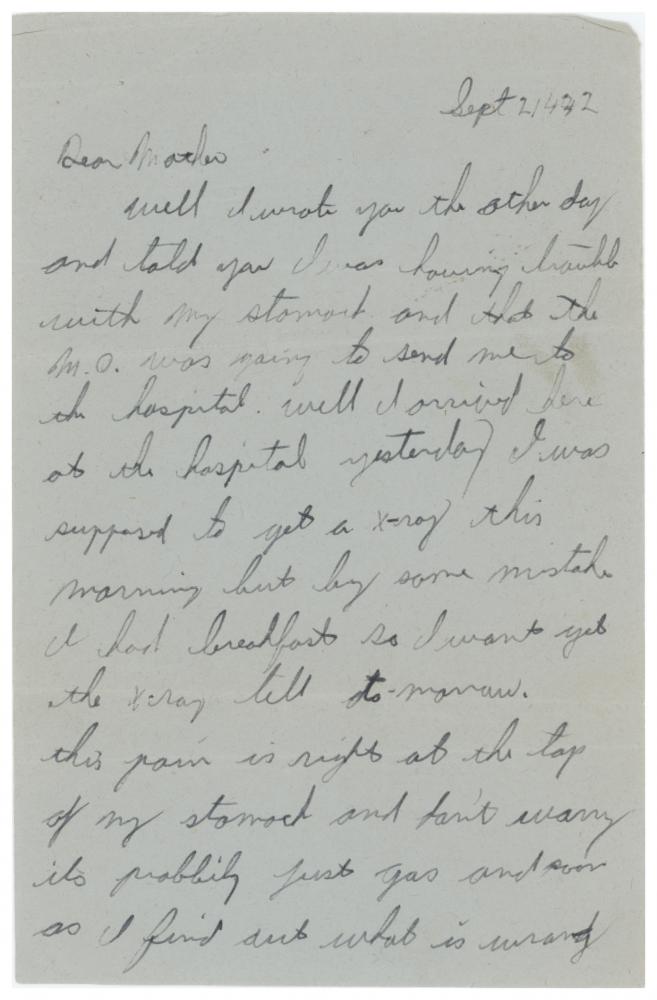 Sept 21/42
Dear Mother
well I wrote you the other day
and told you I was having trouble
with my stomach and that the
M.O. was going to send me to
the hospital. well I arrived here
at the hospital yesterday I was
supposed to get a x-ray this
morning but by some mistake
I had breakfast so I want get
the x-ray till to-morrow.
this pain is right at the top
of my stomach and don't worry
its probbily just gas and soon
as I find out what is wrong